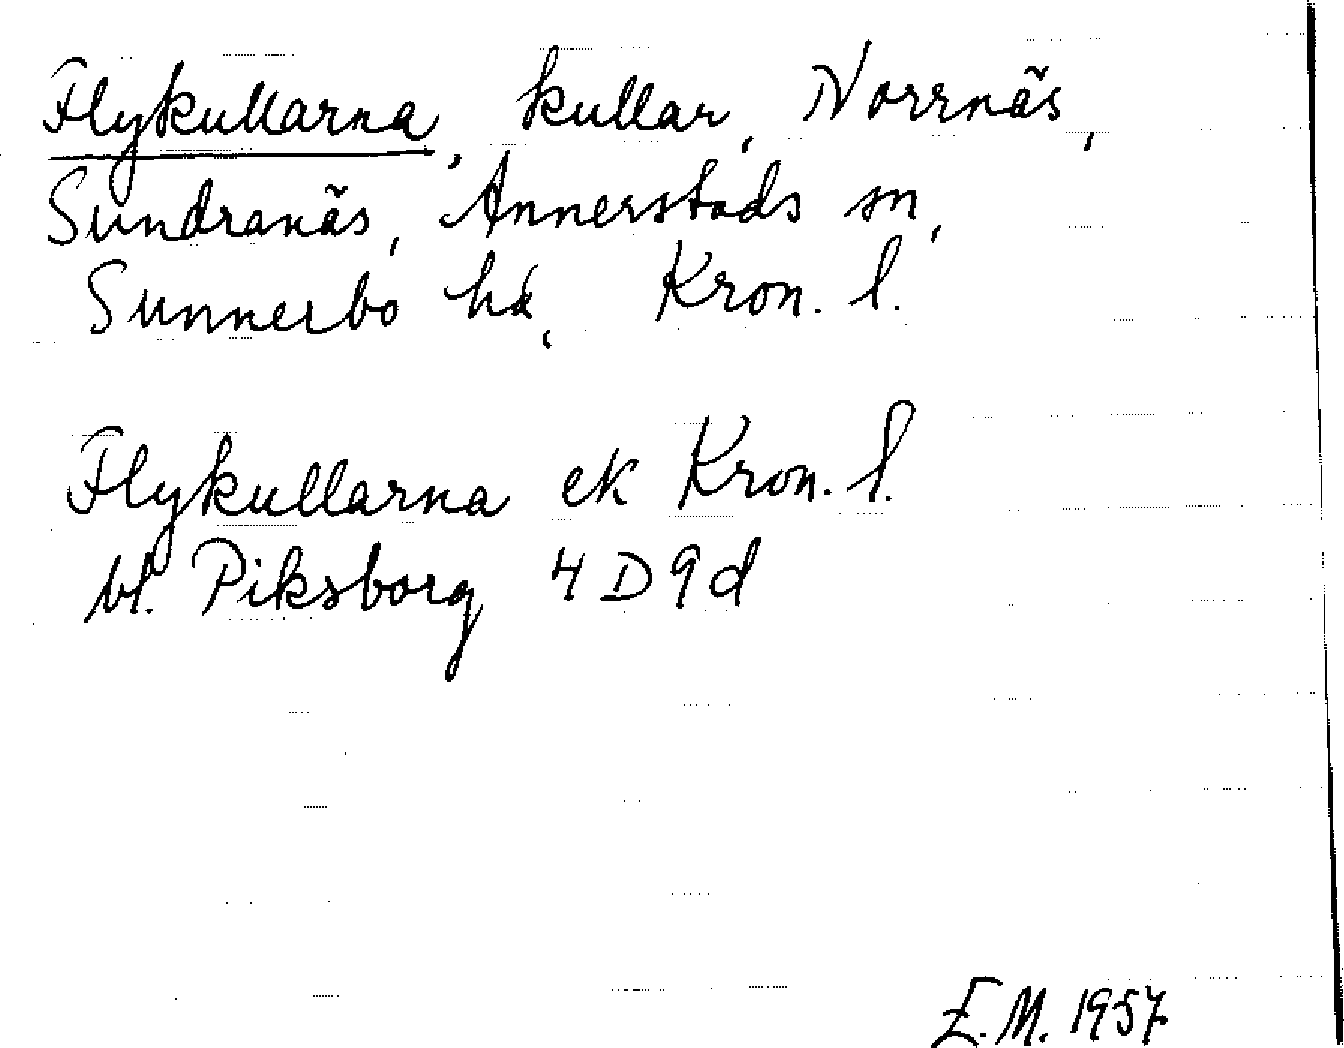 Flykullarna, kullar, Norrnäs,
Sundranäs, Annerstads sn,
Sunnerbo hd, Kron. l.
Flykullarna ek Kron. l.
bl. Piksborg 4D9d
E.M. 1957